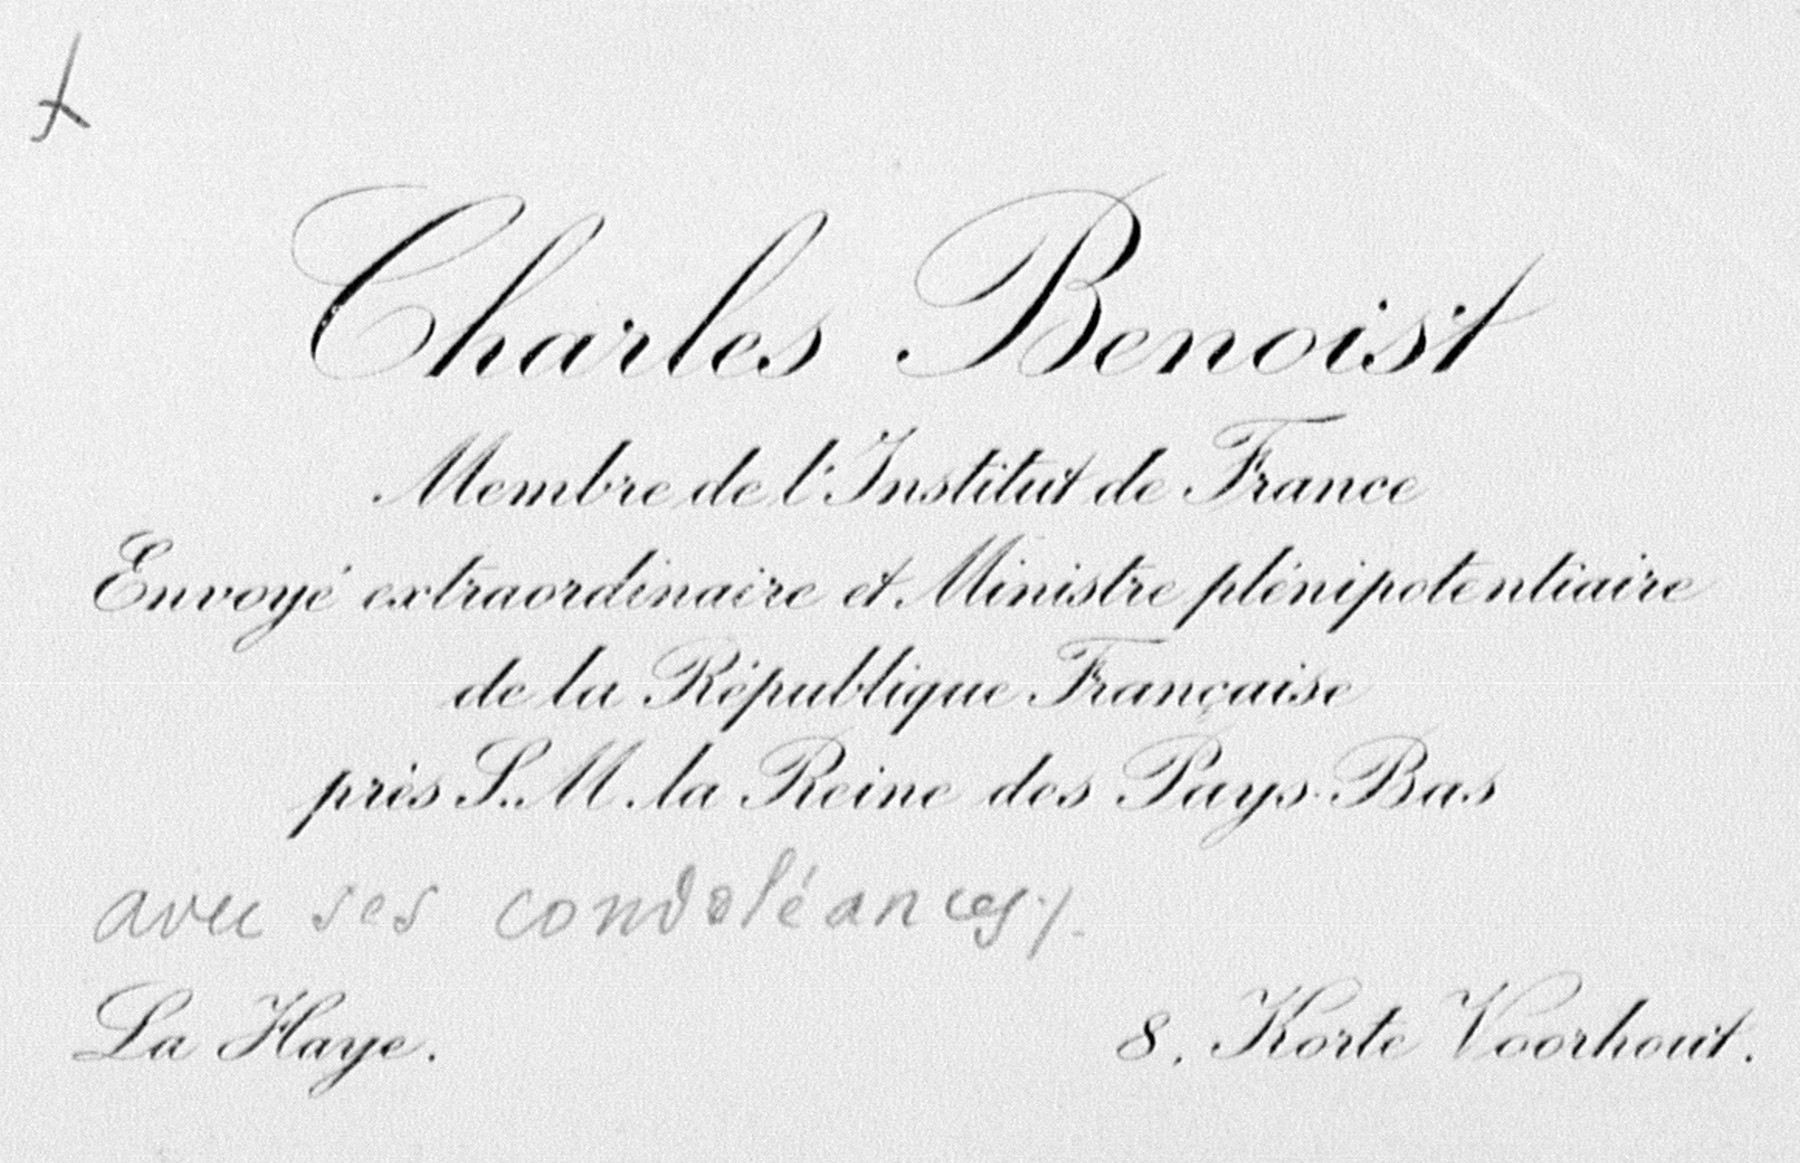 Charles Benoist
Membre de l'Institut de France
Envoyé extraordinaire et Ministre plénipotentiaire
de la République Française
près S. M. la Reine des Pays-Bas
avec ses condoléances
La Haye.
8, Korte Voorhout.